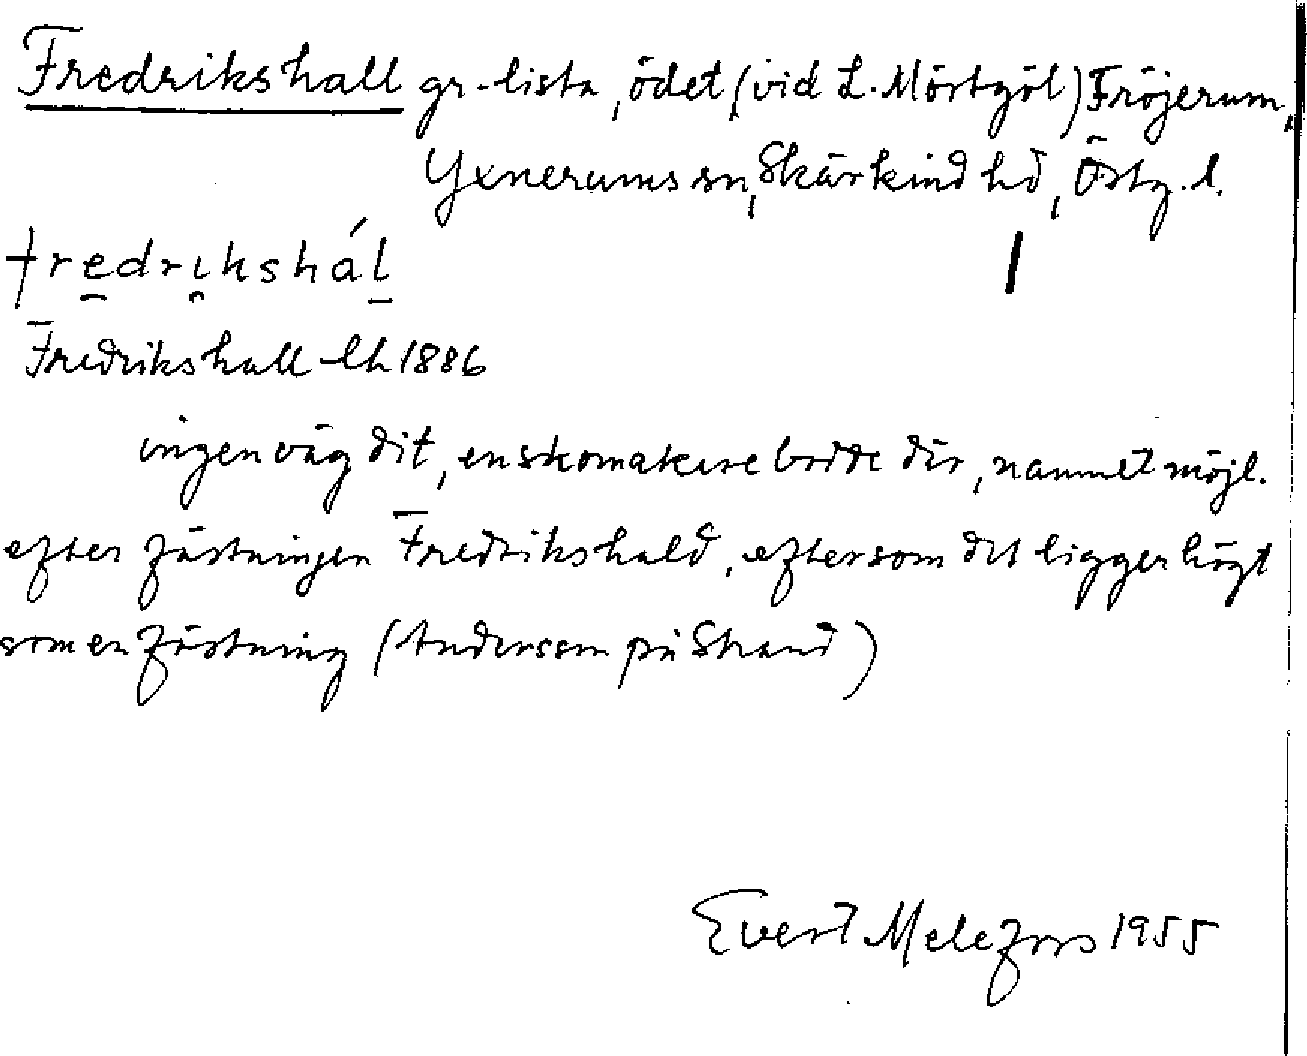 Fredrikshall gr-lista, ödet (vid L. Mörtgöl) Fröjerum,
Yxnerums sn, Skärkind hd, Östg. l.
fredrikshál
Fredrikshall lh 1886
ingen väg dit, en skomakare bodde där, namnet möjl.
efter fästningen Fredrikshald, eftersom det ligger högt
som en fästning (Andersson på Strand)
Evert Melefors 1955